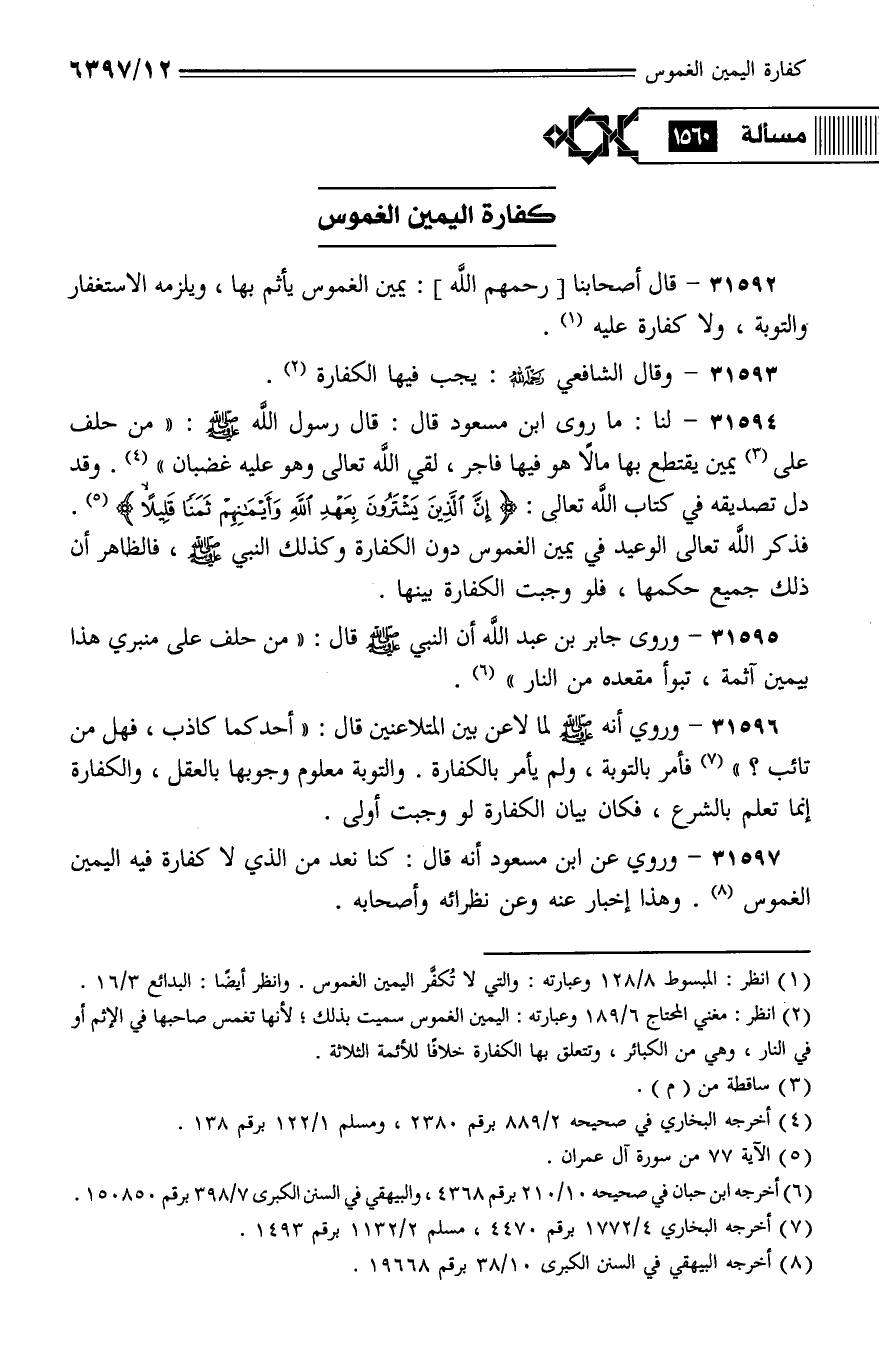 كفارة اليمين الغموس ٦٣٩٧/١٢
مسألة ١٥٦٠
كفارة اليمين الغموس
٣١٥٩٢ - قال أصحابنا [ رحمهم اللَّه ] : يمين الغموس يأثم بها ، ويلزمه الاستغفار
والتوبة ، ولا كفارة عليه (١) .
٣١٥٩٣ - وقال الشافعي رحمه الله : يجب فيها الكفارة (٢) .
٣١٥٩٤ - لنا : ما روى ابن مسعود قال : قال رسول اللَّه ﷺ : « من حلف
على (٣) يمين يقتطع بها مالًا هو فيها فاجر ، لقي اللَّه تعالى وهو عليه غضبان » (٤) . وقد
دل تصديقه في كتاب اللَّه تعالى : ﴿ إِنَّ ٱلَّذِينَ يَشْتَرُونَ بِعَهْدِ ٱللَّهِ وَأَيْمَٰنِهِمْ ثَمَنًا قَلِيلًا ﴾ (٥) .
فذكر اللَّه تعالى الوعيد في يمين الغموس دون الكفارة وكذلك النبي ﷺ ، فالظاهر أن
ذلك جميع حكمها ، فلو وجبت الكفارة بينها .
٣١٥٩٥ - وروى جابر بن عبد اللَّه أن النبي ﷺ قال : « من حلف على منبري هذا
بيمين آثمة ، تبوأ مقعده من النار » (٦) .
٣١٥٩٦ - وروي أنه ﷺ لما لاعن بين المتلاعنين قال : « أحدكما كاذب ، فهل من
تائب ؟ » (٧) فأمر بالتوبة ، ولم يأمر بالكفارة . والتوبة معلوم وجوبها بالعقل ، والكفارة
إنما تعلم بالشرع ، فكان بيان الكفارة لو وجبت أولى .
٣١٥٩٧ - وروي عن ابن مسعود أنه قال : كنا نعد من الذي لا كفارة فيه اليمين
الغموس (٨) . وهذا إخبار عنه وعن نظرائه وأصحابه .
(١) انظر : المبسوط ١٢٨/٨ وعبارته : والتي لا تُكفَّر اليمين الغموس . وانظر أيضًا : البدائع ١٦/٣ .
(٢) انظر : مغني المحتاج ١٨٩/٦ وعبارته : اليمين الغموس سميت بذلك ؛ لأنها تغمس صاحبها في الإثم أو
في النار ، وهي من الكبائر ، وتتعلق بها الكفارة خلافًا للأئمة الثلاثة .
(٣) ساقطة من ( م ) .
(٤) أخرجه البخاري في صحيحه ٨٨٩/٢ برقم ٢٣٨٠ ، ومسلم ١٢٢/١ برقم ١٣٨ .
(٥) الآية ٧٧ من سورة آل عمران .
(٦) أخرجه ابن حبان في صحيحه ٢١٠/١٠ برقم ٤٣٦٨ ، والبيهقي في السنن الكبرى ٣٩٨/٧ برقم ١٥٠٨٥٠ .
(٧) أخرجه البخاري ١٧٧٢/٤ برقم ٤٤٧٠ ، مسلم ١١٣٢/٢ برقم ١٤٩٣ .
(٨) أخرجه البيهقي في السنن الكبرى ٣٨/١٠ برقم ١٩٦٦٨ .